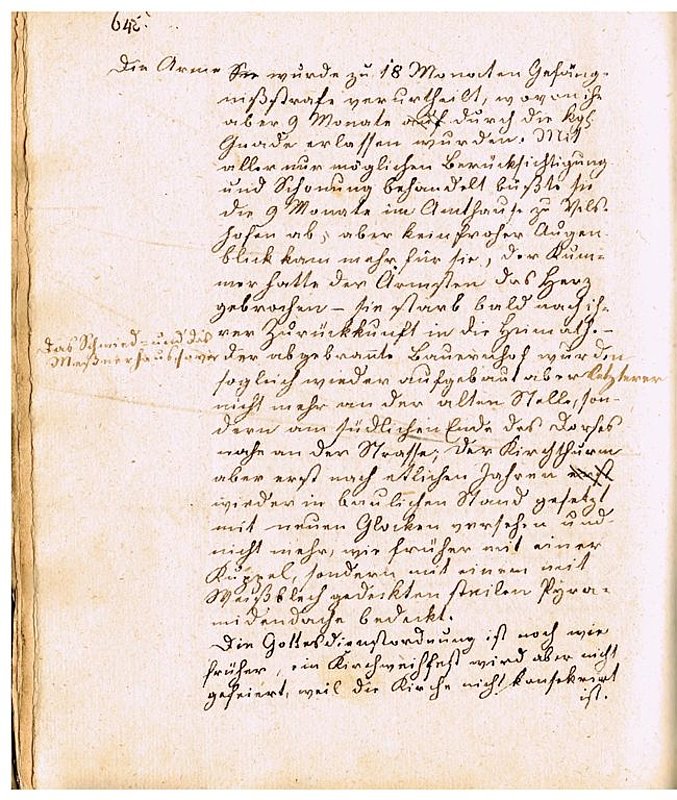 64.
Die Arme Sie wurde zu 18 Monaten Gefäng-
nißstrafe verurtheilt, wovon ihr
aber 9 Monate auf durch die kgl.
Gnade erlassen wurden. Mit
aller nur möglichen Berücksichtigung
und Schonung behandelt büßte sie
die 9 Monate im Amthause zu Vils-
hofen ab, aber kein froher Augen-
blick kam mehr für sie, der Kum-
mer hatte der Ärmsten das Herz
gebrochen – sie starb bald nach ih-
rer Zurückkunft in die Heimath. –
Das Schmied- und das
Meßnerhaus sowie
der abgebrannte Bauernhof wurden
sogleich wieder aufgebaut aber letzterer
nicht mehr an der alten Stelle, son-
dern am südlichen Ende des Dorfes
nahe an der Strasse; der Kirchthurm
aber erst nach etlichen Jahren erst
wieder in baulichen Stand gesetzt
mit neuen Glocken versehen und
nicht mehr, wie früher mit einer
Kuppel, sondern mit einem mit
Weißblech gedeckten steilen Pyra-
midendache bedeckt.
Die Gottesdienstordnung ist noch wie
früher, ein Kirchweihfest wird aber nicht
gefeiert, weil die Kirche nicht konsekrirt
ist.